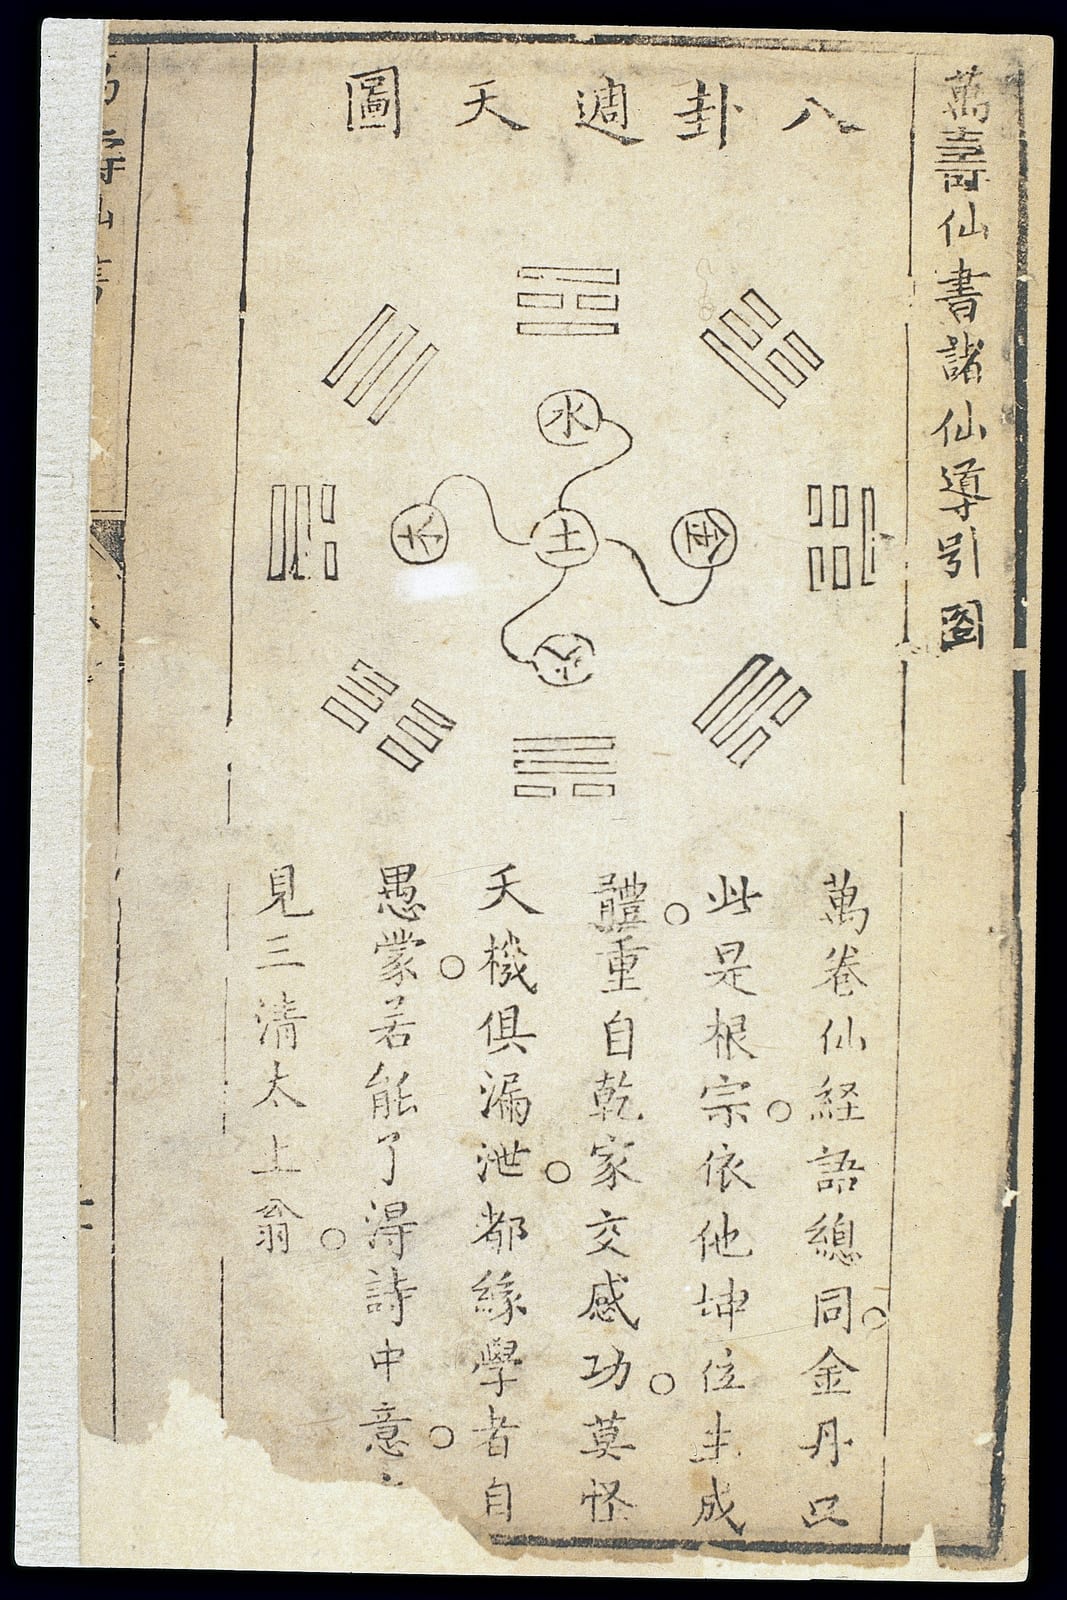 萬壽仙書諸仙導引圖
八卦週天圖
水
木
土
金
火
萬卷仙経語總同。金丹只
此是根宗。依他坤位生成
體。重自乾家交感功。莫怪
天機俱漏泄。都緣學者自
愚蒙。若能了得詩中意。
見三清太上翁。